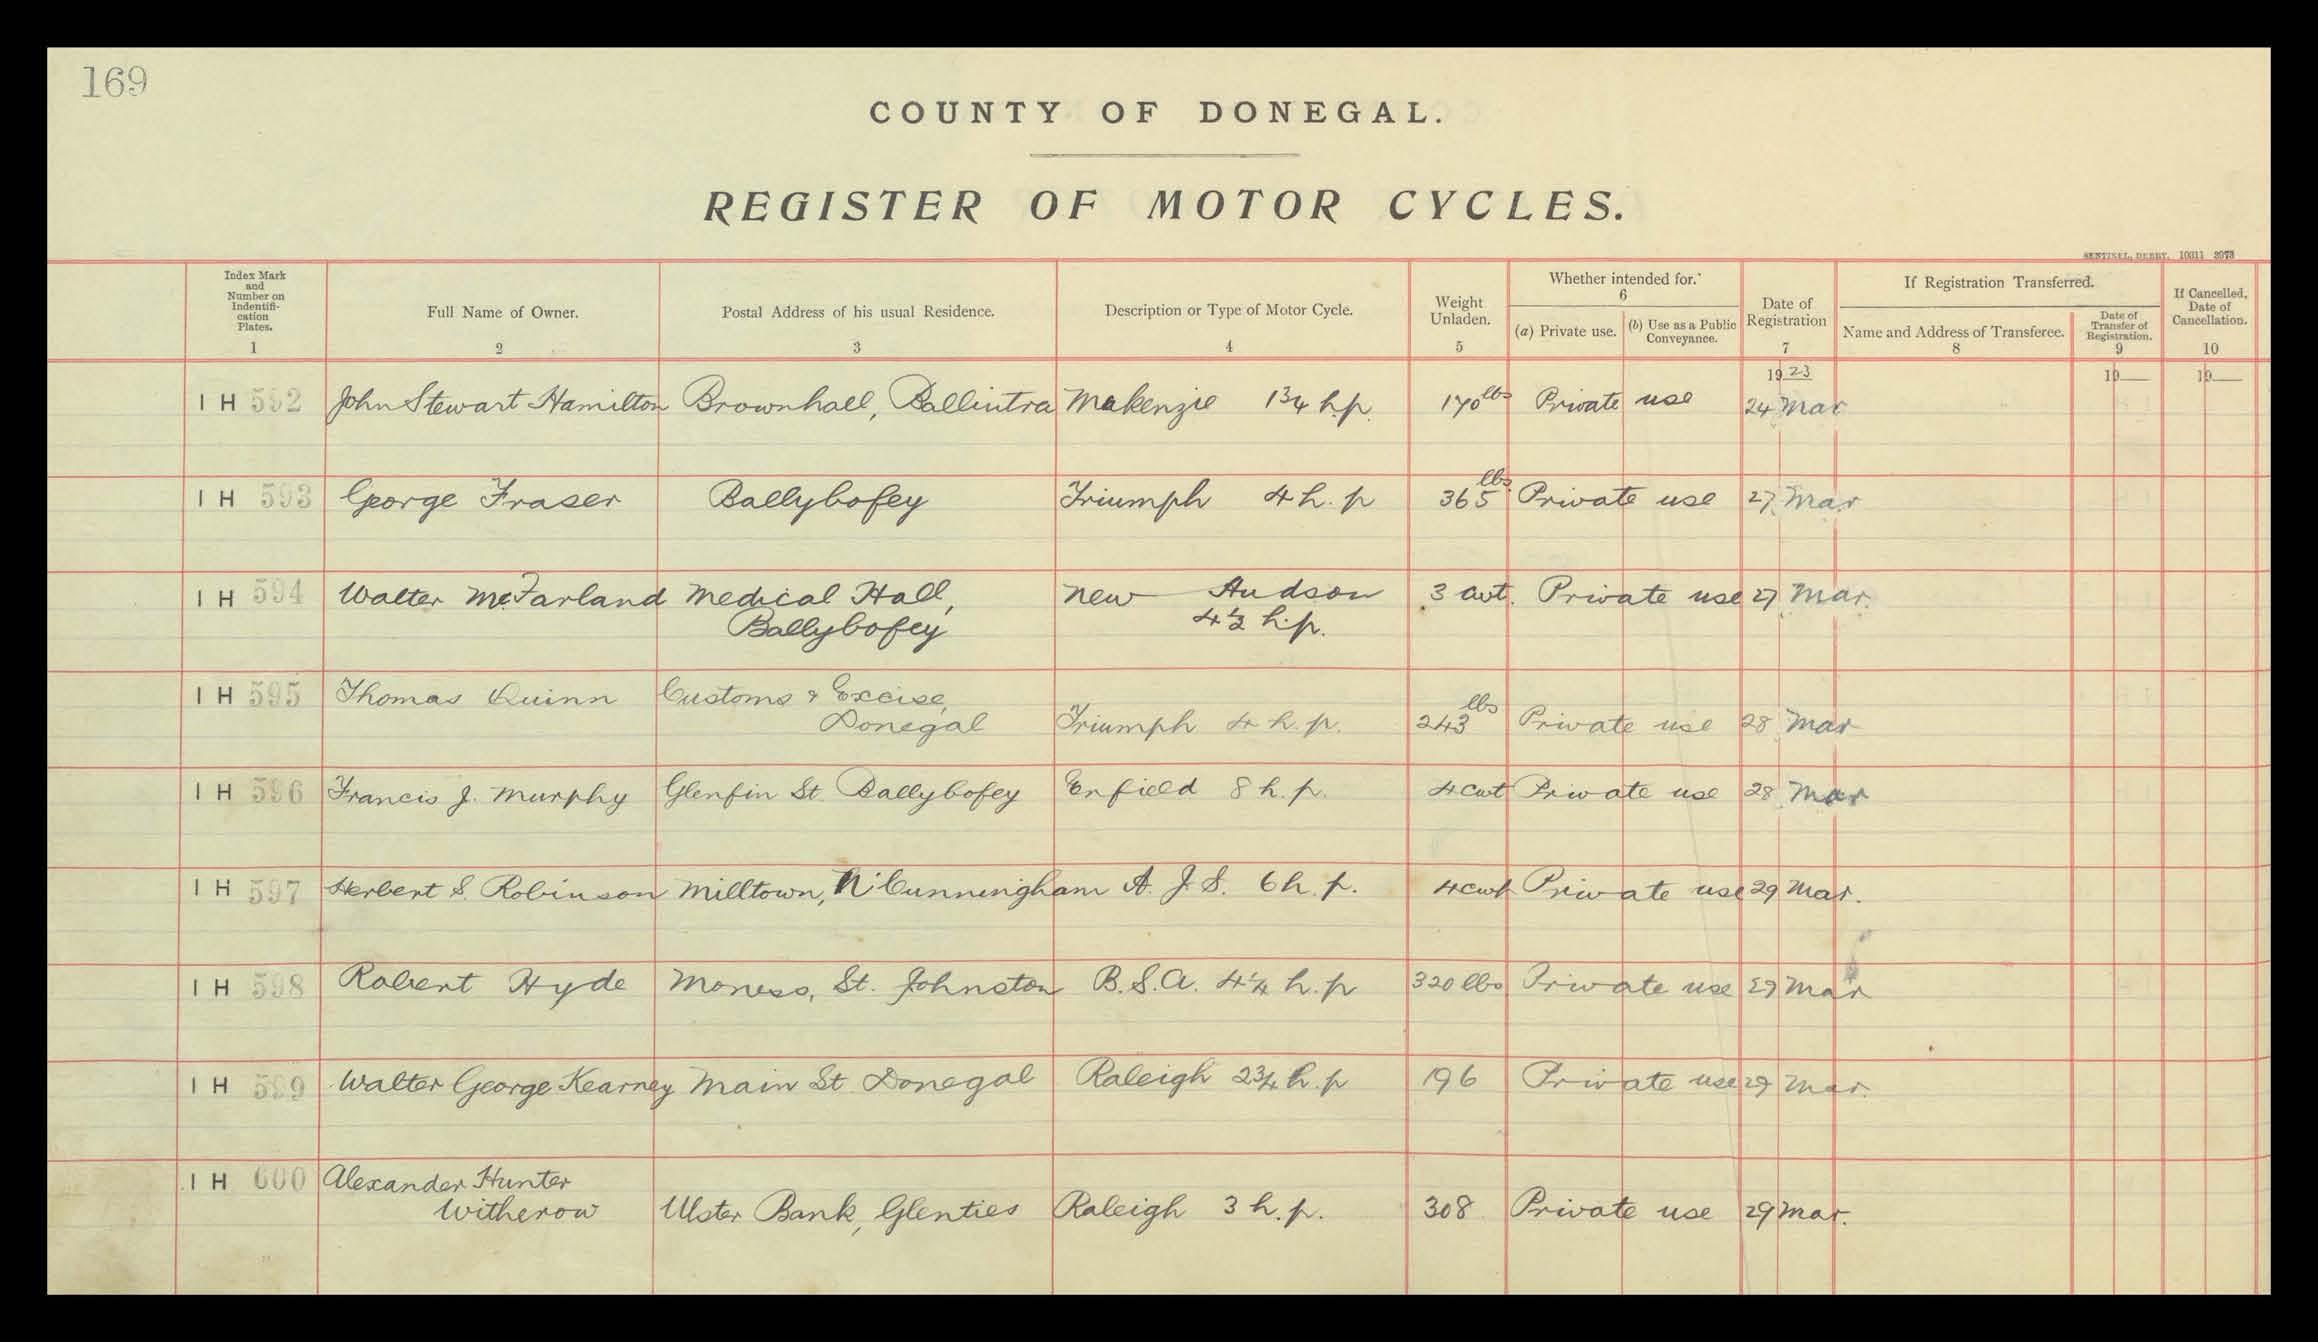 169
COUNTY OF DONEGAL.
REGISTER OF MOTOR CYCLES.
SENTINEL, DERRY. 10311 3973
Index Mark and Number on Indentifi-cation Plates. 1
Full Name of Owner. 2
Postal Address of his usual Residence. 3
Description or Type of Motor Cycle. 4
Weight Unladen. 5
Whether intended for. 6
(a) Private use.
(b) Use as a Public Conveyance.
Date of Registration 7
If Registration Transferred.
Name and Address of Transferee. 8
Date of Transfer of Registration. 9
If Cancelled, Date of Cancellation. 10
1923 19 19
IH 592 John Stewart Hamilton Brownhall, Ballintra Makenzie 1¾ h.p. 170 lbs Private use 24 Mar
IH 593 George Fraser Ballybofey Triumph 4 h.p 365 lbs. Private use 27 Mar
IH 594 Walter McFarland Medical Hall, New Hudson 3 cwt. Private use 27 Mar.
Ballybofey 4½ h.p.
IH 595 Thomas Quinn Customs & Excise,
Donegal Triumph 4 h.p. 243 lbs Private use 28 Mar
IH 596 Francis J. Murphy Glenfin St. Ballybofey Enfield 8 h.p. 4 cwt Private use 28 Mar
IH 597 Herbert S. Robinson Milltown, N'Cunningham A.J.S. 6 h.p. 4 cwt Private use 29 Mar.
IH 598 Robert Hyde Moness, St. Johnston B.S.A. 4¼ h.p 320 lbs Private use 29 Mar
IH 599 Walter George Kearney Main St Donegal Raleigh 2¾ h.p 196 Private use 29 Mar.
IH 600 Alexander Hunter
Witherow Ulster Bank, Glenties Raleigh 3 h.p. 308 Private use 29 Mar.